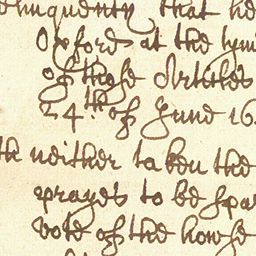 delinquenty that he
Oxford at the tyme
of those Articles
24.th of June 16
th neither taken the
prayes to be spar
vote of the howse